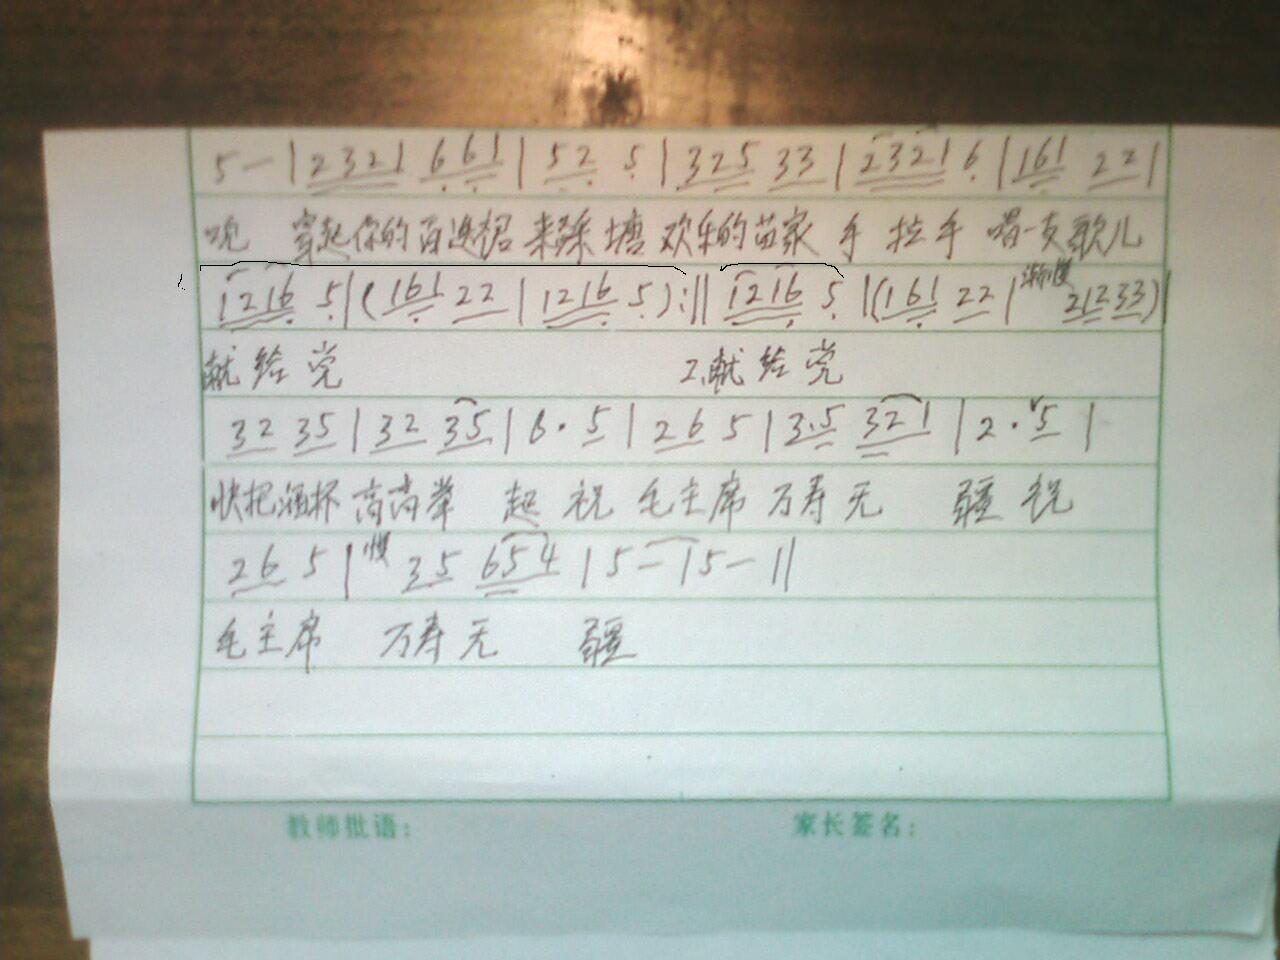 5 — | 2321 661 | 52 5 | 325 33 | 2321 6 | 161 22 |
穿起你的百边裙 来踩塘 欢乐的苗家 手 拉 手 唱一支歌儿
1216 5 | (161 22 | 1216 5) :|| 1216 5 | (161 22 | 渐慢 21233) |
献 给 党 2.献 给 党
32 35 | 32 35 | 6· 5 | 26 5 | 3.5 321 | 2· 5 |
快把酒杯 高高举 起 祝 毛主席 万寿 无 疆 祝
26 5 | 慢 35 654 | 5 — | 5 — ||
毛主席 万寿 无 疆
教师批语: 家长签名: